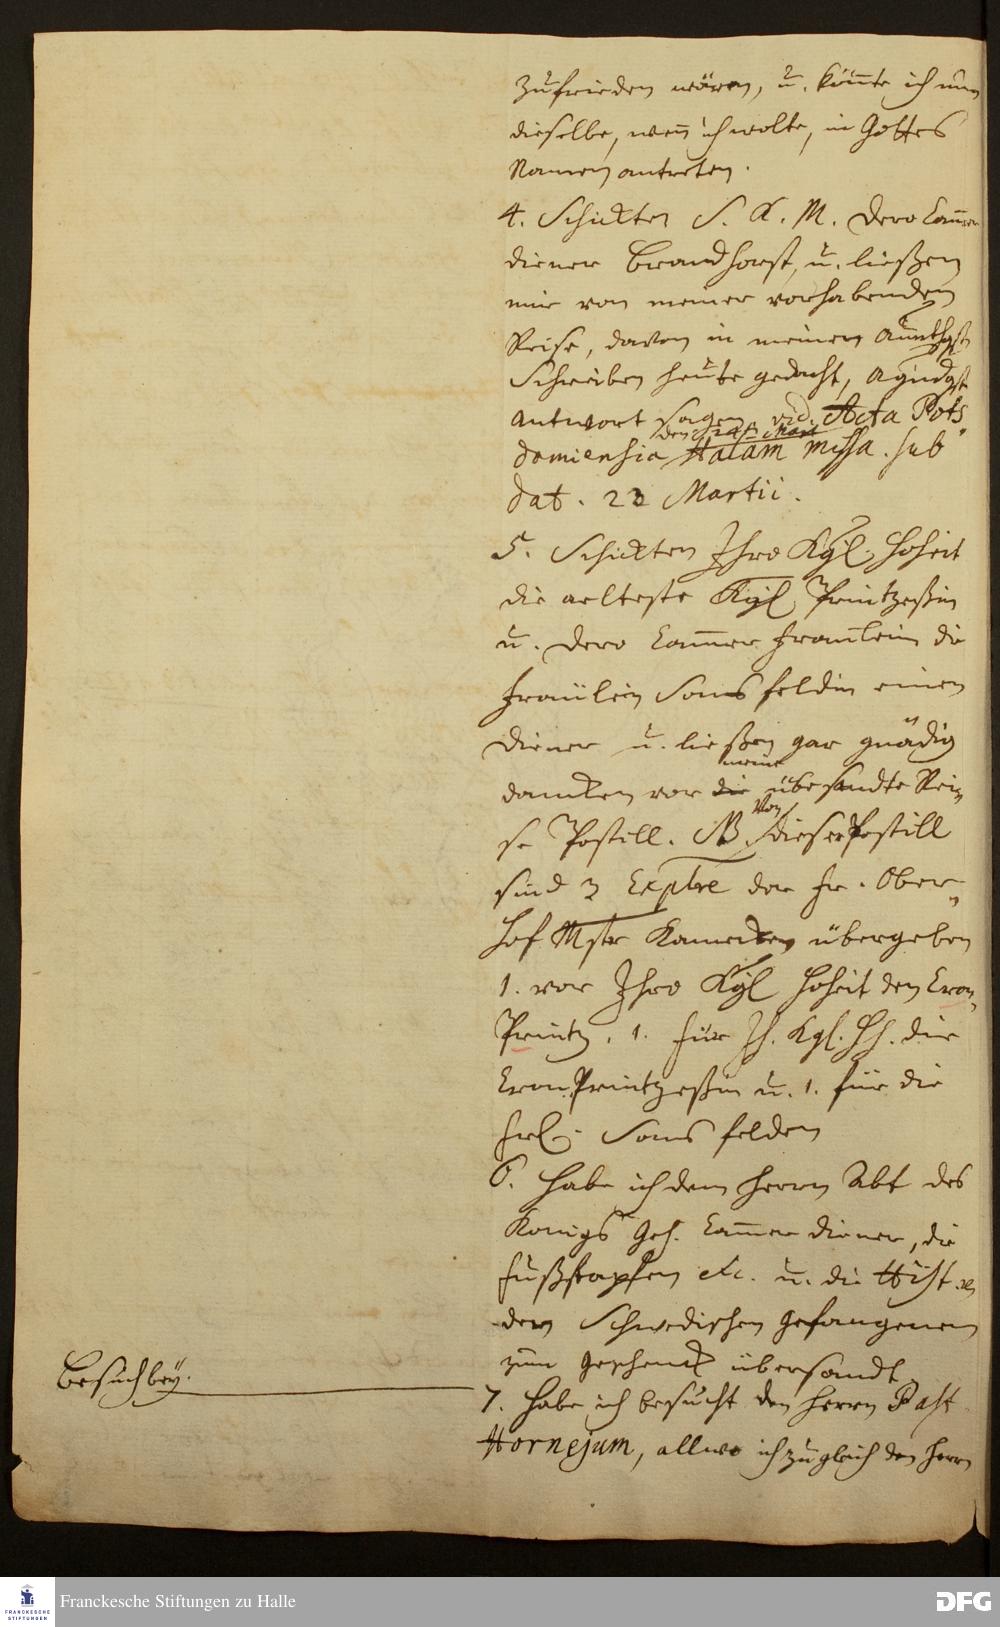 zufrieden wären, u. könnte ich nun
dieselbe, wenn ich wolte, in Gottes
Namen antreten.
4. Schickten S. K. M. dero Cammer
diener Brandhorst, u. ließen
mir von meiner vorhabenden
Reise, davon in meinem
Schreiben heute gedacht,
antwort sagen vid. Acta Pots
damiensia Halam missa. sub
dat. 23 Martii.
5. Schickten Ihro Kgl. Hoheit
die aelteste Kgl. Printzeßin
u. dero Cammer Fraulein die
Fräulein Sonsfeldin einen
Diener u. ließen gar gnädig
dancken vor die meine übersandte Rei
se Postill. NB. Von dieser Postill
sind 3 Explre der Fr. Ober
Hof Mstr Kamecken übergeben
1. vor Ihro Kgl Hoheit den Cron
Printz, 1. für Ih. Kgl. Hh. die
Cron Printzeßin u. 1. für die
Frl. Sonsfelden
6. Habe ich dem Herrn Abt des
Königs Geh. Cammer diener, die
Fußstapfen etc. u. die Hist.
der Schwedischen Gefangenen
zum Geschenck übersandt.
Besuch bey.
7. Habe ich besucht den Herrn Past
Hornejum, allwo ich zugleich den Herrn
Franckesche Stiftungen zu Halle
FRANCKESCHE
STIFTUNGEN
DFG